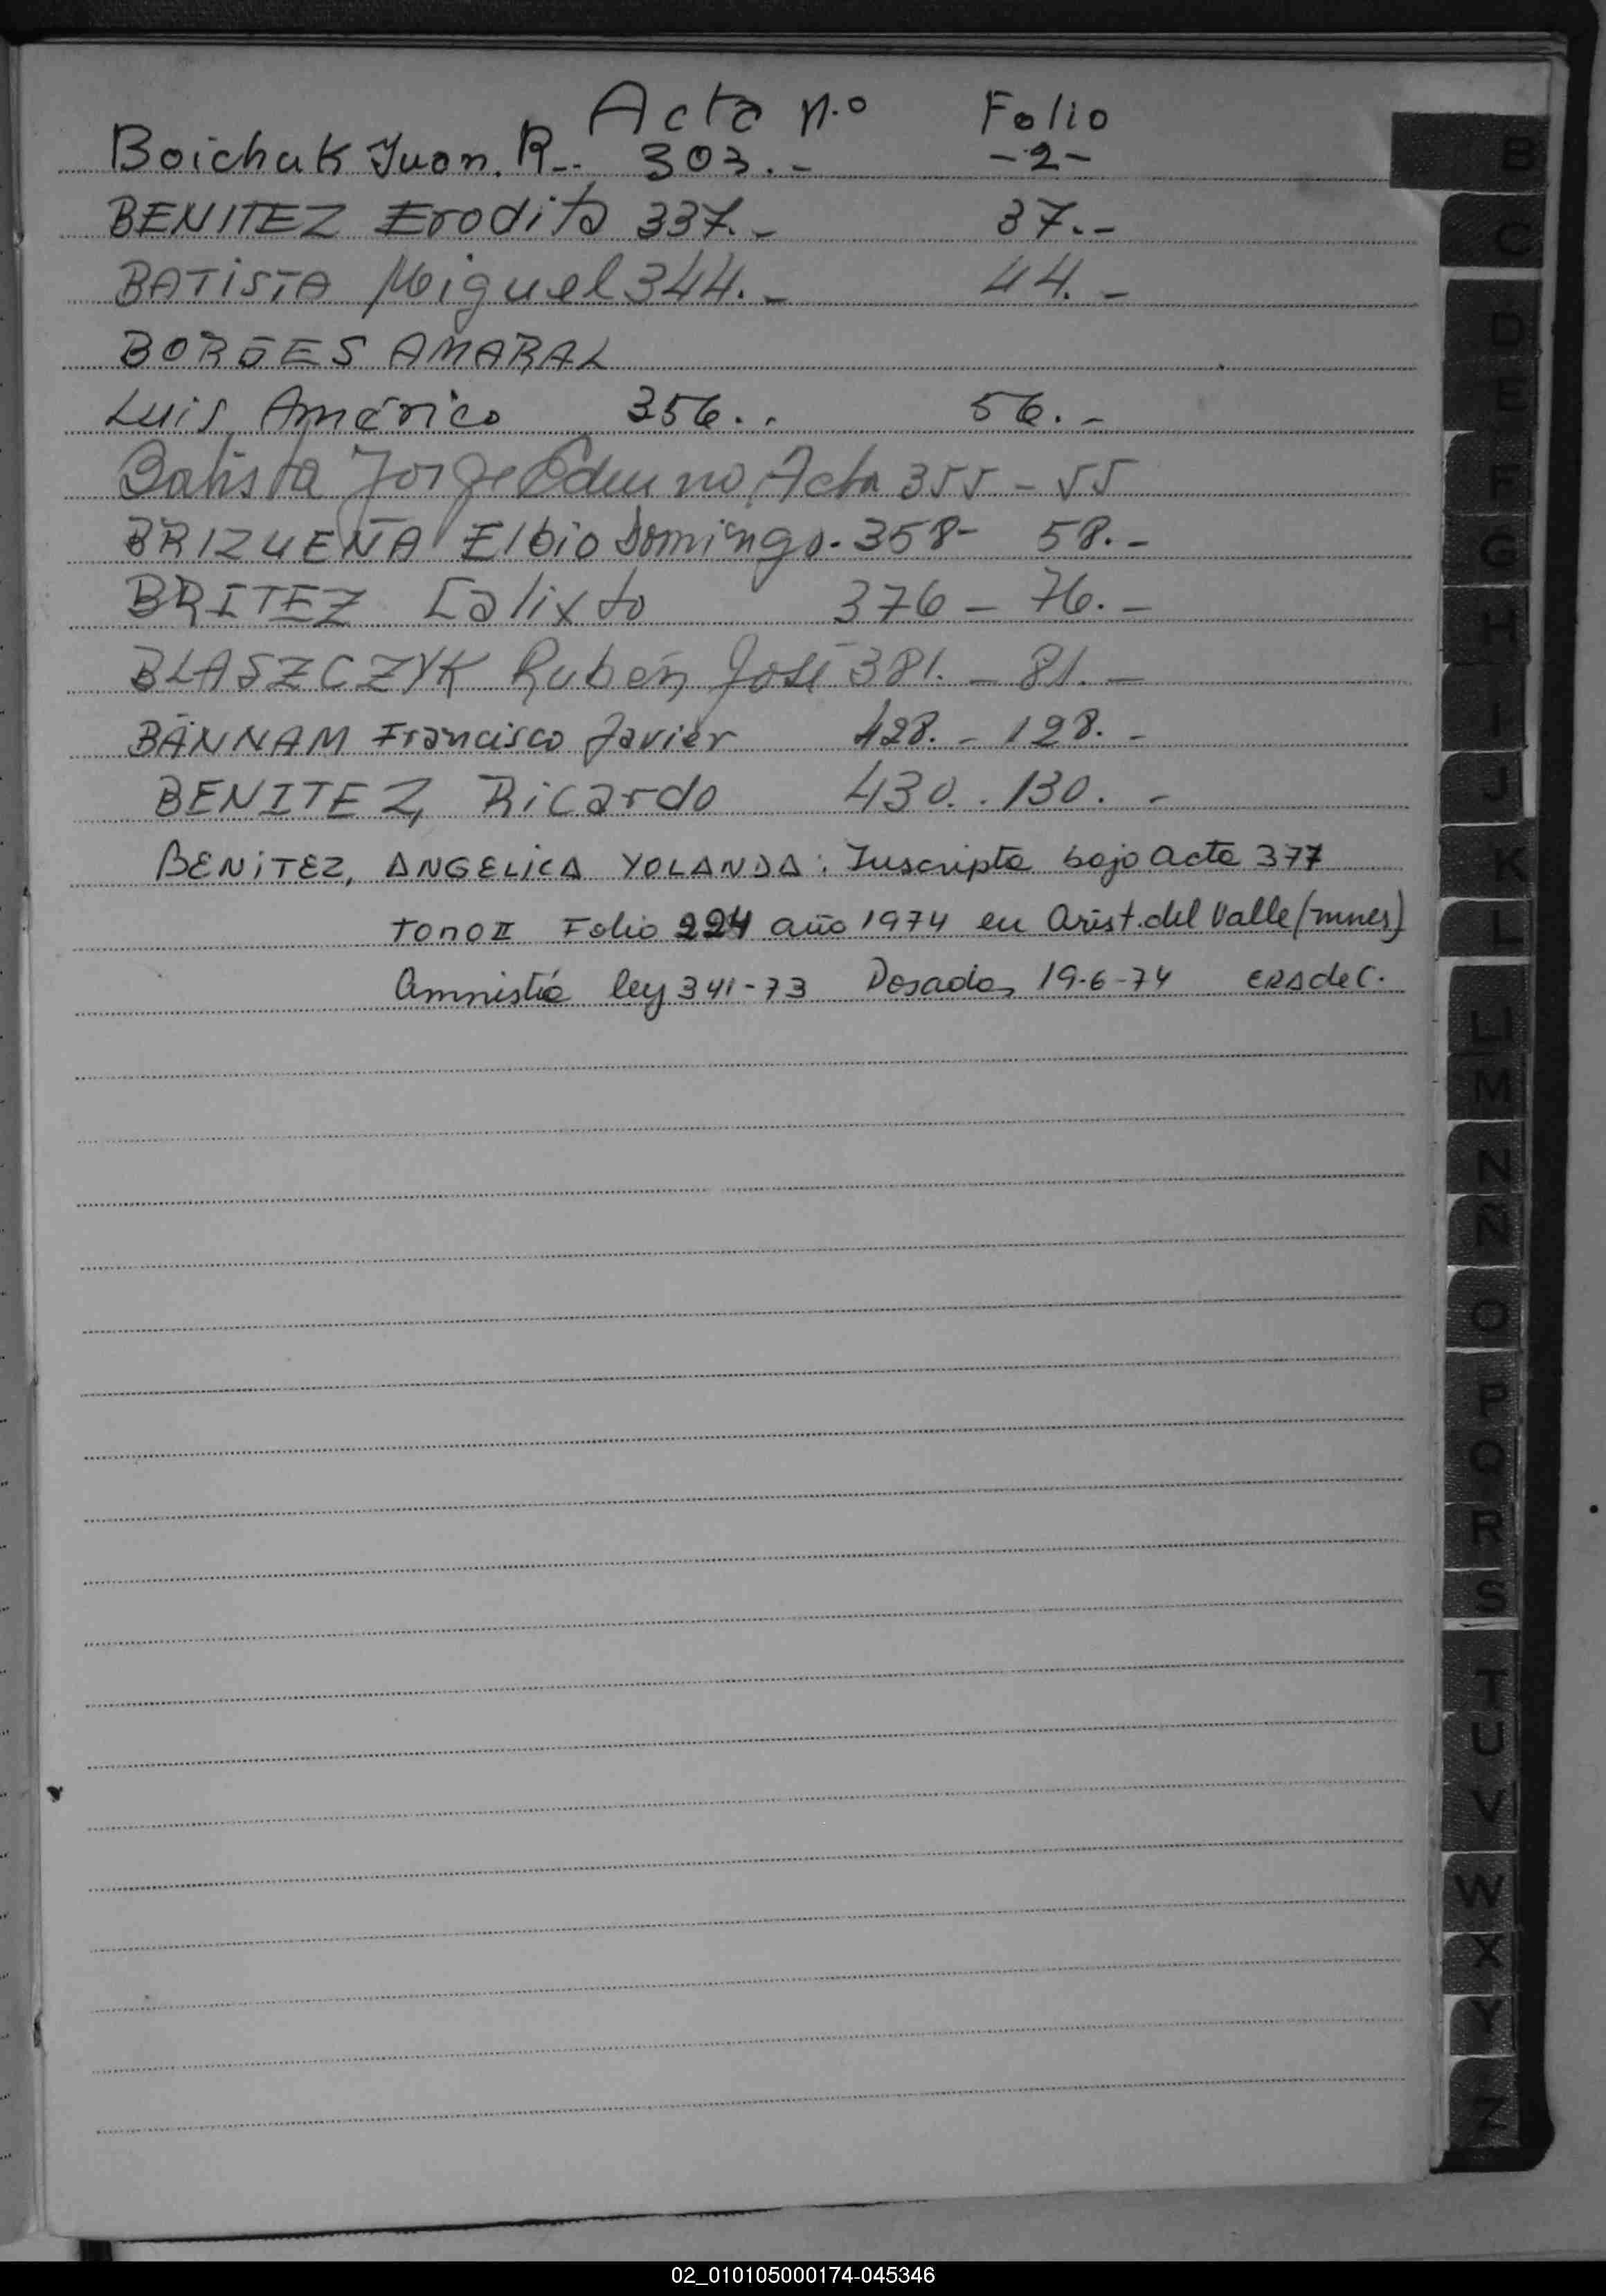 Acta n.o Folio
Boichuk Juan. R.. 303.- -2-
BENITEZ Erodita 337.- 37.-
BATISTA Miguel 344.- 44.-
BORGES AMARAL
Luis Américo 356.. 56.-
Batista Jorge Acta 355 - 55
BRIZUEÑA Elbio Domingo. 358- 58.-
BRITEZ Calixto 376 - 76.-
BLASZCZYK Rubén José 381. - 81. -
BÄNNAM Francisco Javier 428. - 128. -
BENITEZ, Ricardo 430. . 130. -
BENITEZ, ANGELICA YOLANDA: Inscripta bajo acta 377
TOMO II Folio 224 año 1974 en Arist. del Valle (mnes)
Amnistía ley 341-73 Posadas 19-6-74
B
C
D
E
F
G
H
I
J
K
L
LL
M
N
Ñ
O
P
Q
R
S
T
U
V
W
X
Y
Z
02_010105000174-045346